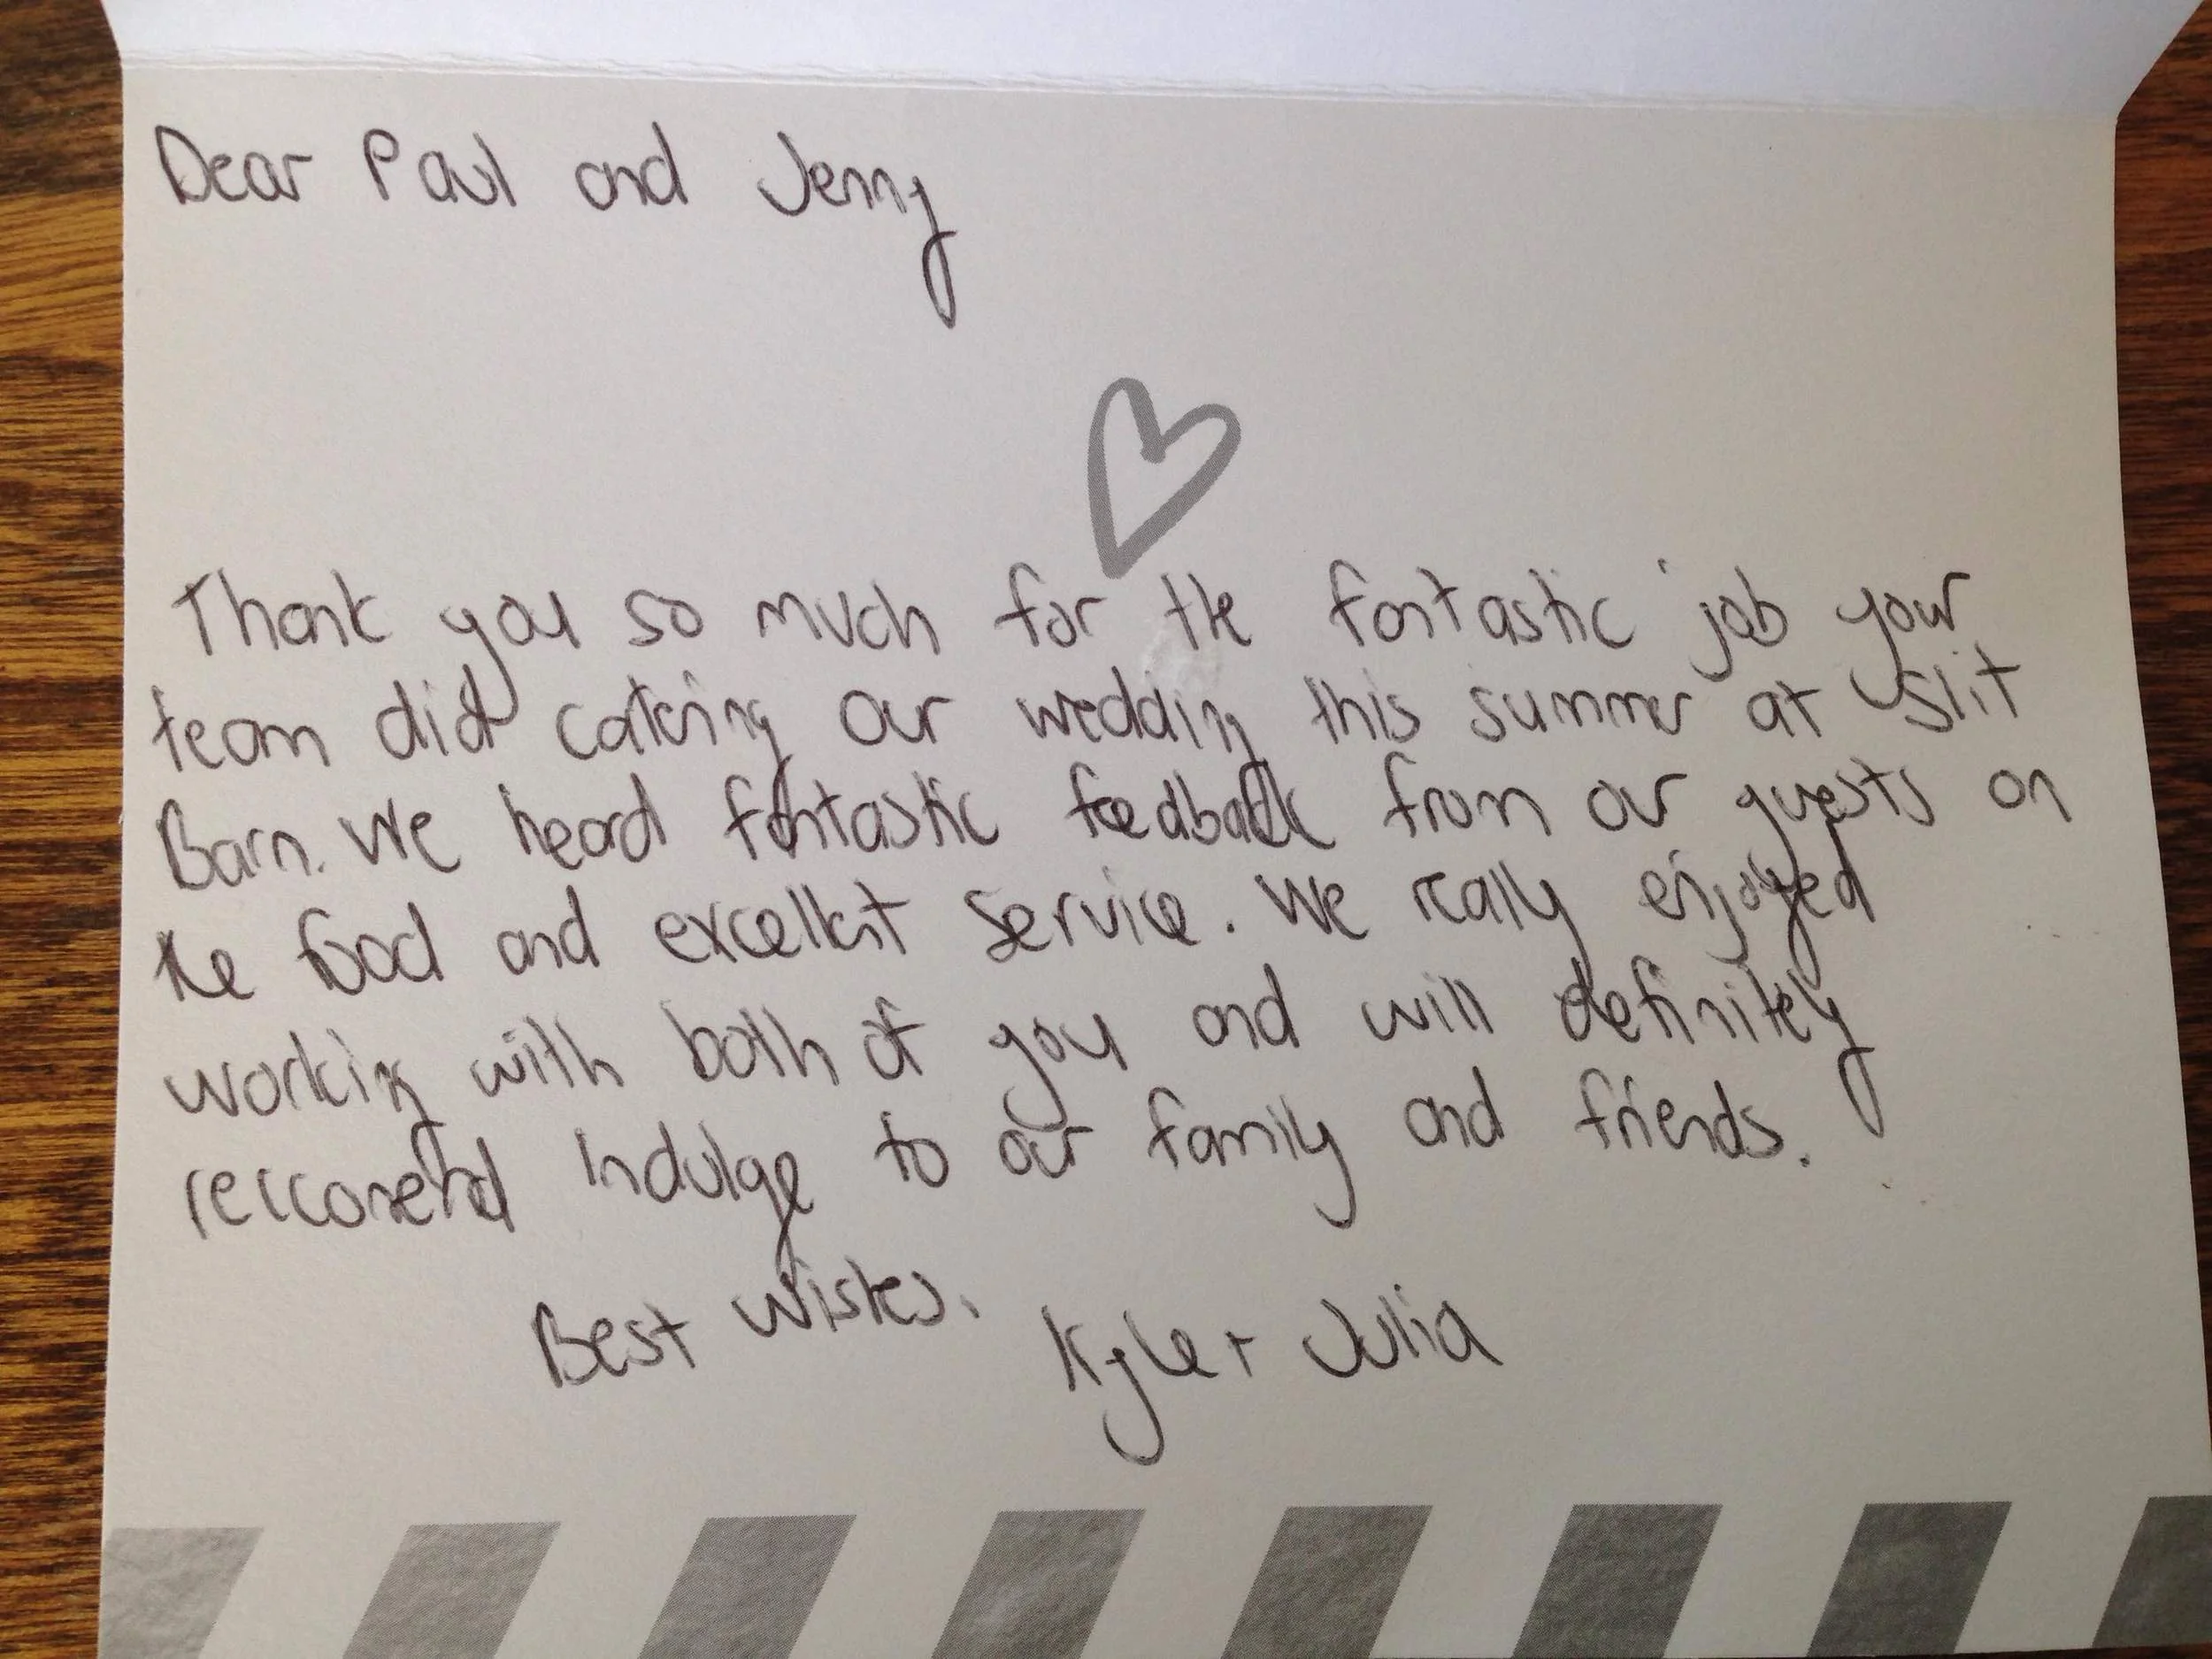 Dear Paul and Jenny
Thank you so much for the fantastic job your
team did catering our wedding this summer at Slit
Barn. We heard fantastic feedback from our guests on
the food and excellent service. We really enjoyed
working with both of you and will definitey
reccomend Indulge to our family and friends.
Best wishes. Kyle + Julia